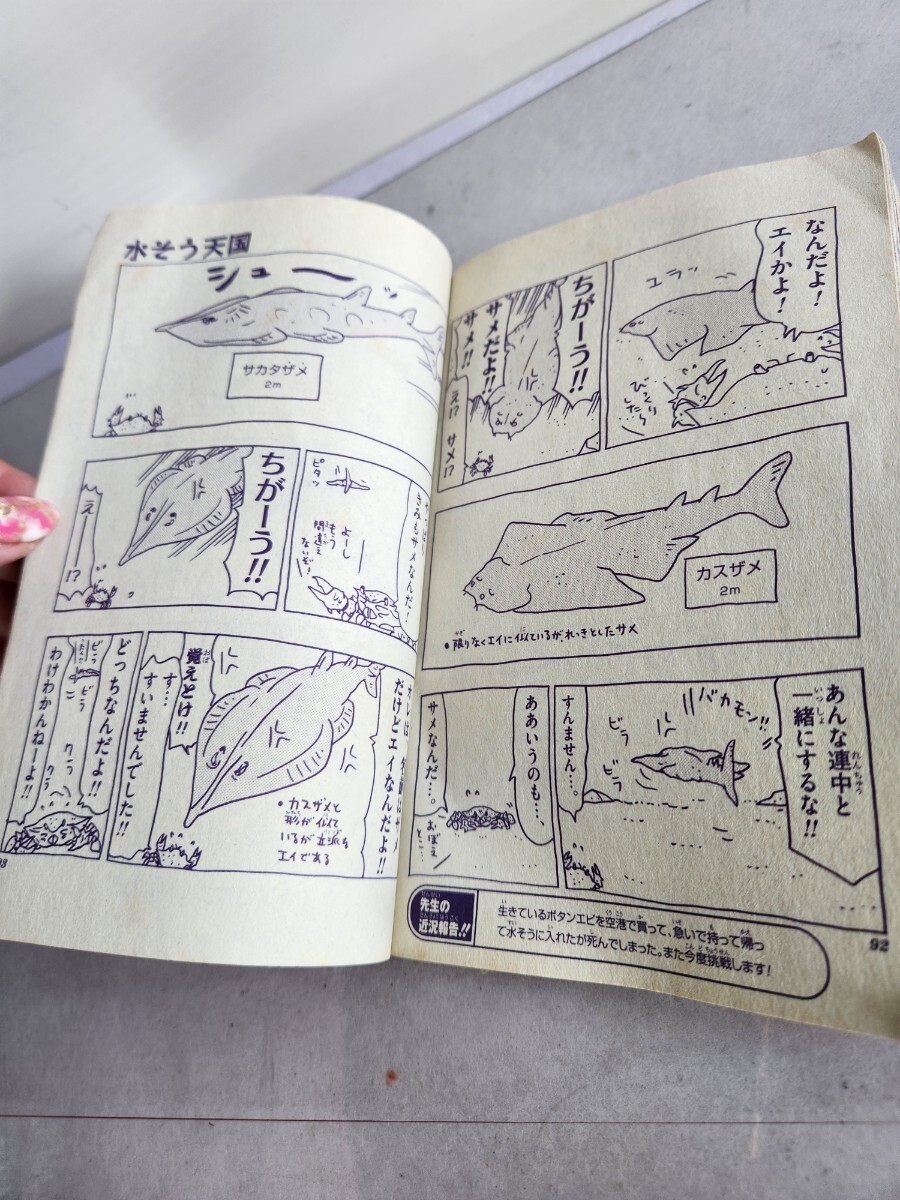 なんだよ!
エイかよ!
ユラッ
びっくり
したら
ちがーう!!
サメだよ!!
サメ!!
え!?
サメ!?
カスザメ
2m
●限りなくエイに似ているがれっきとしたサメ
あんな連中と
一緒にするな!!
バカモン!!
ビラ
ビラ
すんません…。
ああいうのも…
サメなんだ…。
おぼえ
とこ…
先生の
近況報告!!
生きているボタンエビを空港で買って、急いで持って帰っ
て水そうに入れたが死んでしまった。また今度挑戦します!
92
水そう天国
シューッ
サカタザメ
2m
きみもサメなんだ!
ピタッ
よーし
もう
間違え
ないぞ!
ちがーう!!
えー!?
オレは
だけどエイなんだよ!!
覚えとけ!!
●カスザメと
形が似て
いるが立派な
エイである
す…
すいませんでした!!
どっちなんだよ!!
わけわかんねーよ!!
クラ
クラ